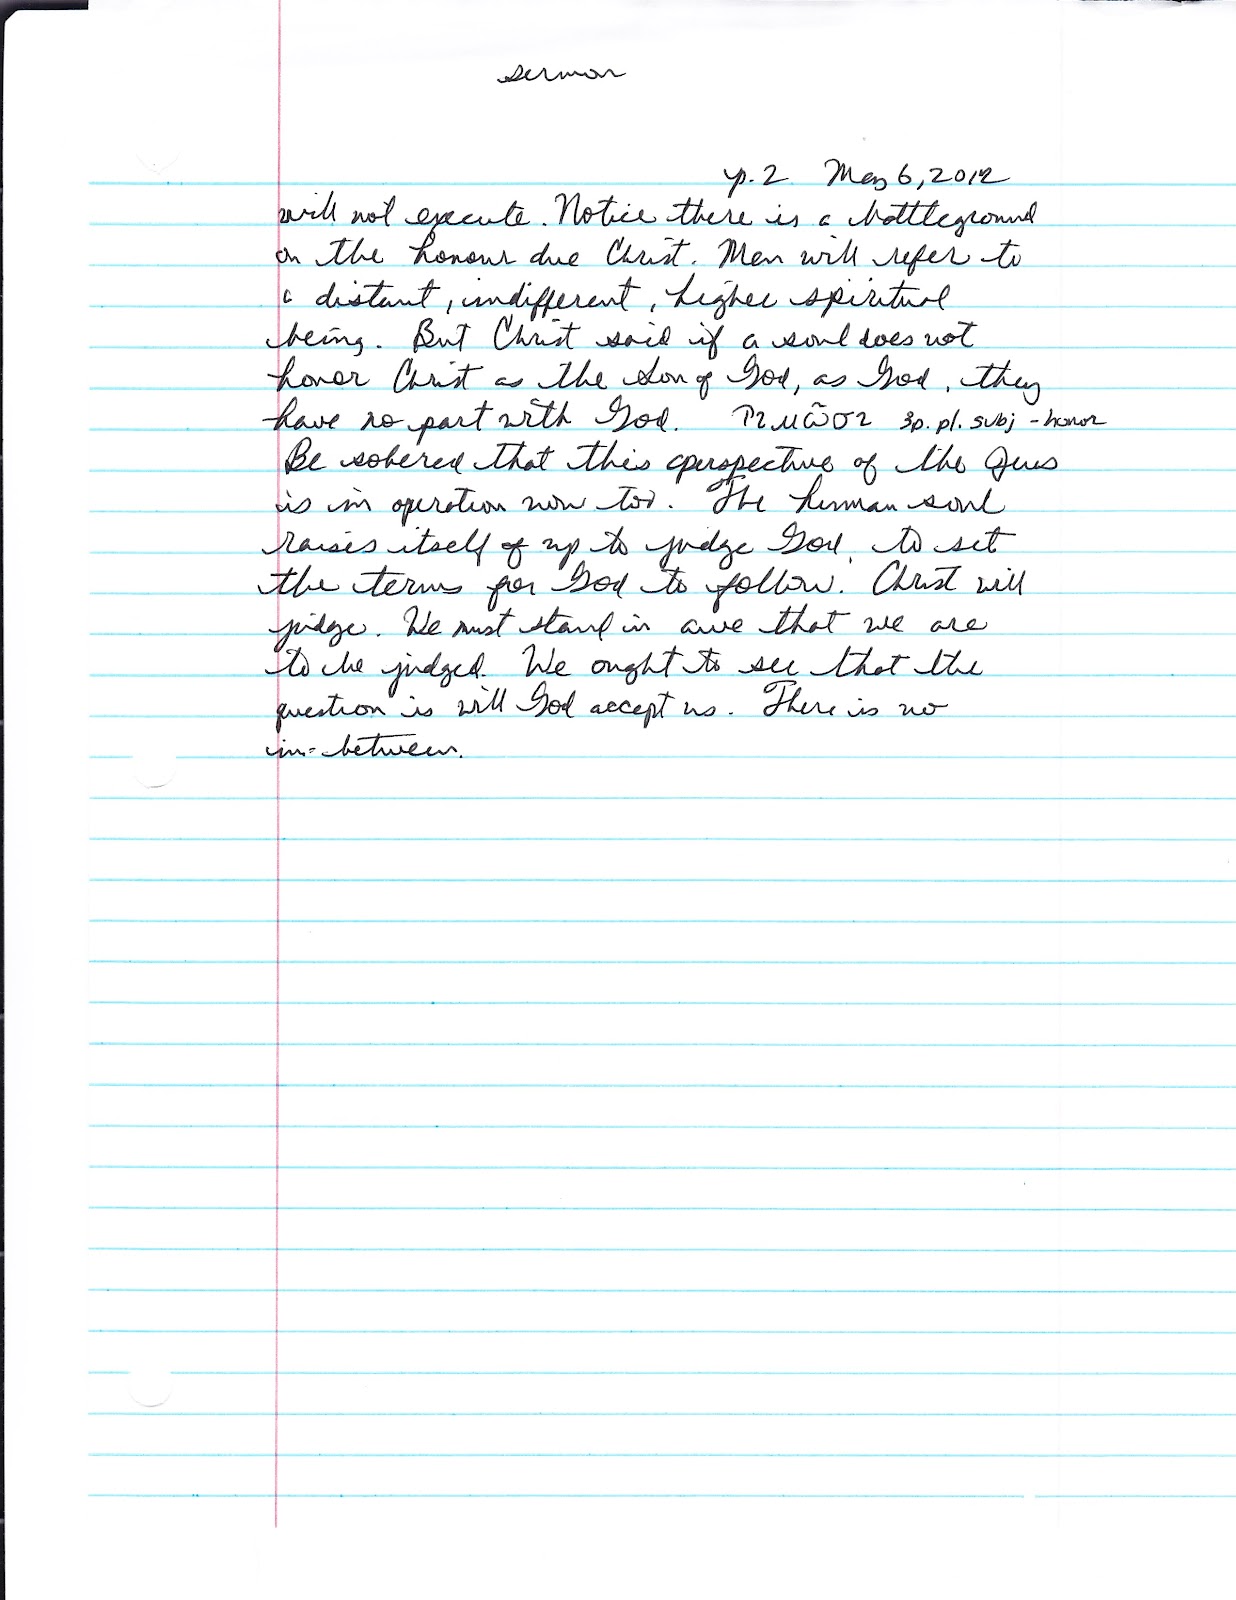 sermon
p. 2 May 6, 2012
will not execute. Notice there is a battleground
on the honour due Christ. Men will refer to
a distant, indifferent, higher spiritual
being. But Christ said if a soul does not
honor Christ as the Son of God, as God, they
have no part with God. τιμῶσι 3p. pl. subj - honor
Be sobered that this perspective of the Jews
is in operation now too. The human soul
raises itself of up to judge God, to set
the terms for God to follow. Christ will
judge. We must stand in awe that we are
to be judged. We ought to see that the
question is will God accept us. There is no
in-between.